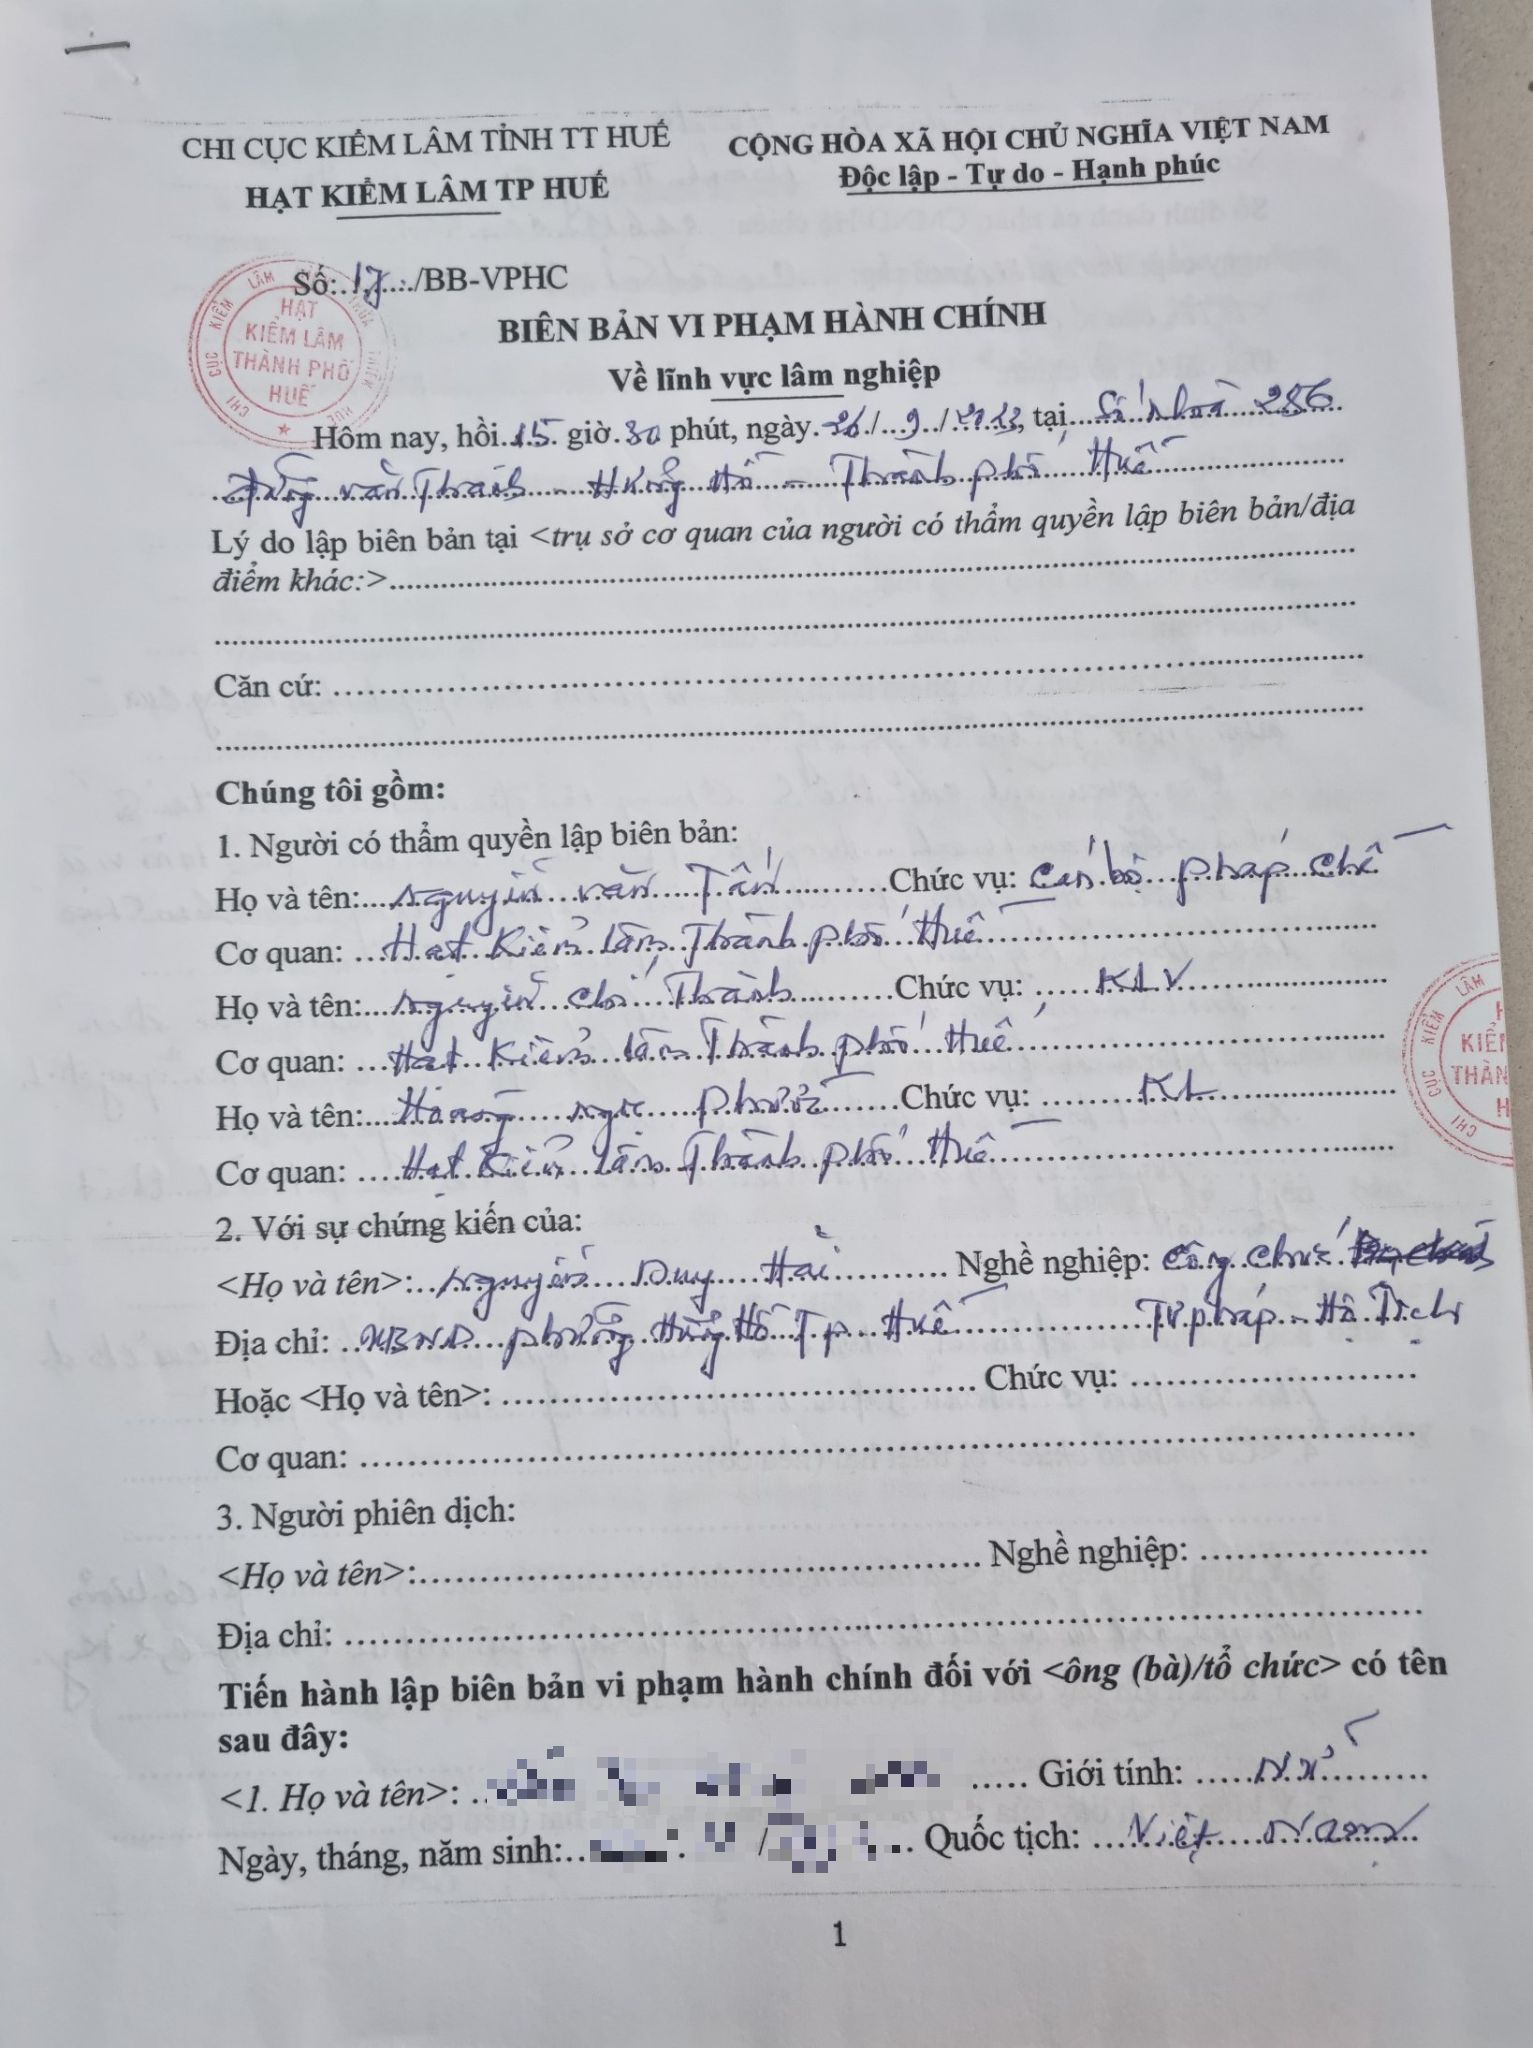 CHI CỤC KIỂM LÂM TỈNH TT HUẾ
HẠT KIỂM LÂM TP HUẾ
CỘNG HÒA XÃ HỘI CHỦ NGHĨA VIỆT NAM
Độc lập - Tự do - Hạnh phúc
Số: 17 /BB-VPHC
CHI CỤC KIỂM LÂM THỪA THIÊN HUẾ
HẠT
KIỂM LÂM
THÀNH PHỐ
HUẾ
BIÊN BẢN VI PHẠM HÀNH CHÍNH
Về lĩnh vực lâm nghiệp
Hôm nay, hồi 15 giờ 30 phút, ngày 26/9/2023, tại Số nhà 286
văn Thánh - Hương Hồ - Thành phố Huế
Lý do lập biên bản tại <trụ sở cơ quan của người có thẩm quyền lập biên bản/địa
điểm khác:>
Căn cứ:
Chúng tôi gồm:
1. Người có thẩm quyền lập biên bản:
Họ và tên: Nguyễn văn Tấn Chức vụ: Cán bộ pháp chế
Cơ quan: Hạt Kiểm lâm Thành phố Huế
Họ và tên: Nguyễn Chí Thành Chức vụ: KLV
Cơ quan: Hạt Kiểm lâm Thành phố Huế
Họ và tên: Hoàng Ngọc Phước Chức vụ: KL
Cơ quan: Hạt Kiểm lâm Thành phố Huế
KIỂ
THÀN
H
2. Với sự chứng kiến của:
<Họ và tên>: Nguyễn Duy Hải Nghề nghiệp: Công chức
Địa chỉ: UBND phường Hương Hồ Tp Huế Tư pháp - Hộ Tịch
Hoặc <Họ và tên>: Chức vụ:
Cơ quan:
3. Người phiên dịch:
<Họ và tên>: Nghề nghiệp:
Địa chỉ:
Tiến hành lập biên bản vi phạm hành chính đối với <ông (bà)/tổ chức> có tên
sau đây:
<1. Họ và tên>: Giới tính: Nữ
Ngày, tháng, năm sinh: / Quốc tịch: Việt Nam
1